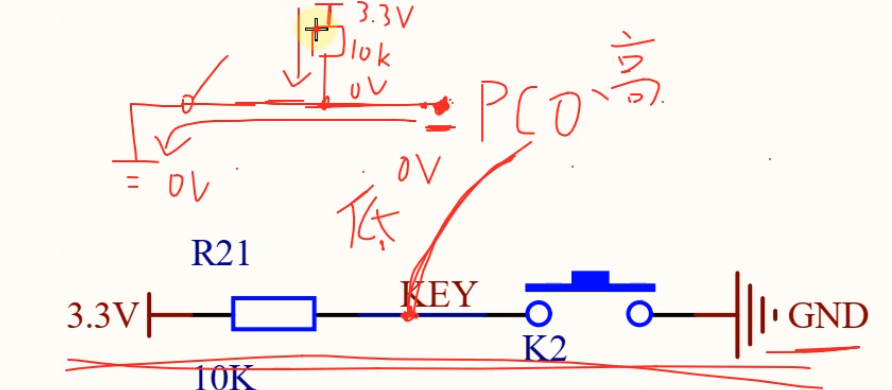 3.3V
10k
0V
PC0、高
= 0V
0V
低
R21
3.3V
KEY
GND
K2
10K